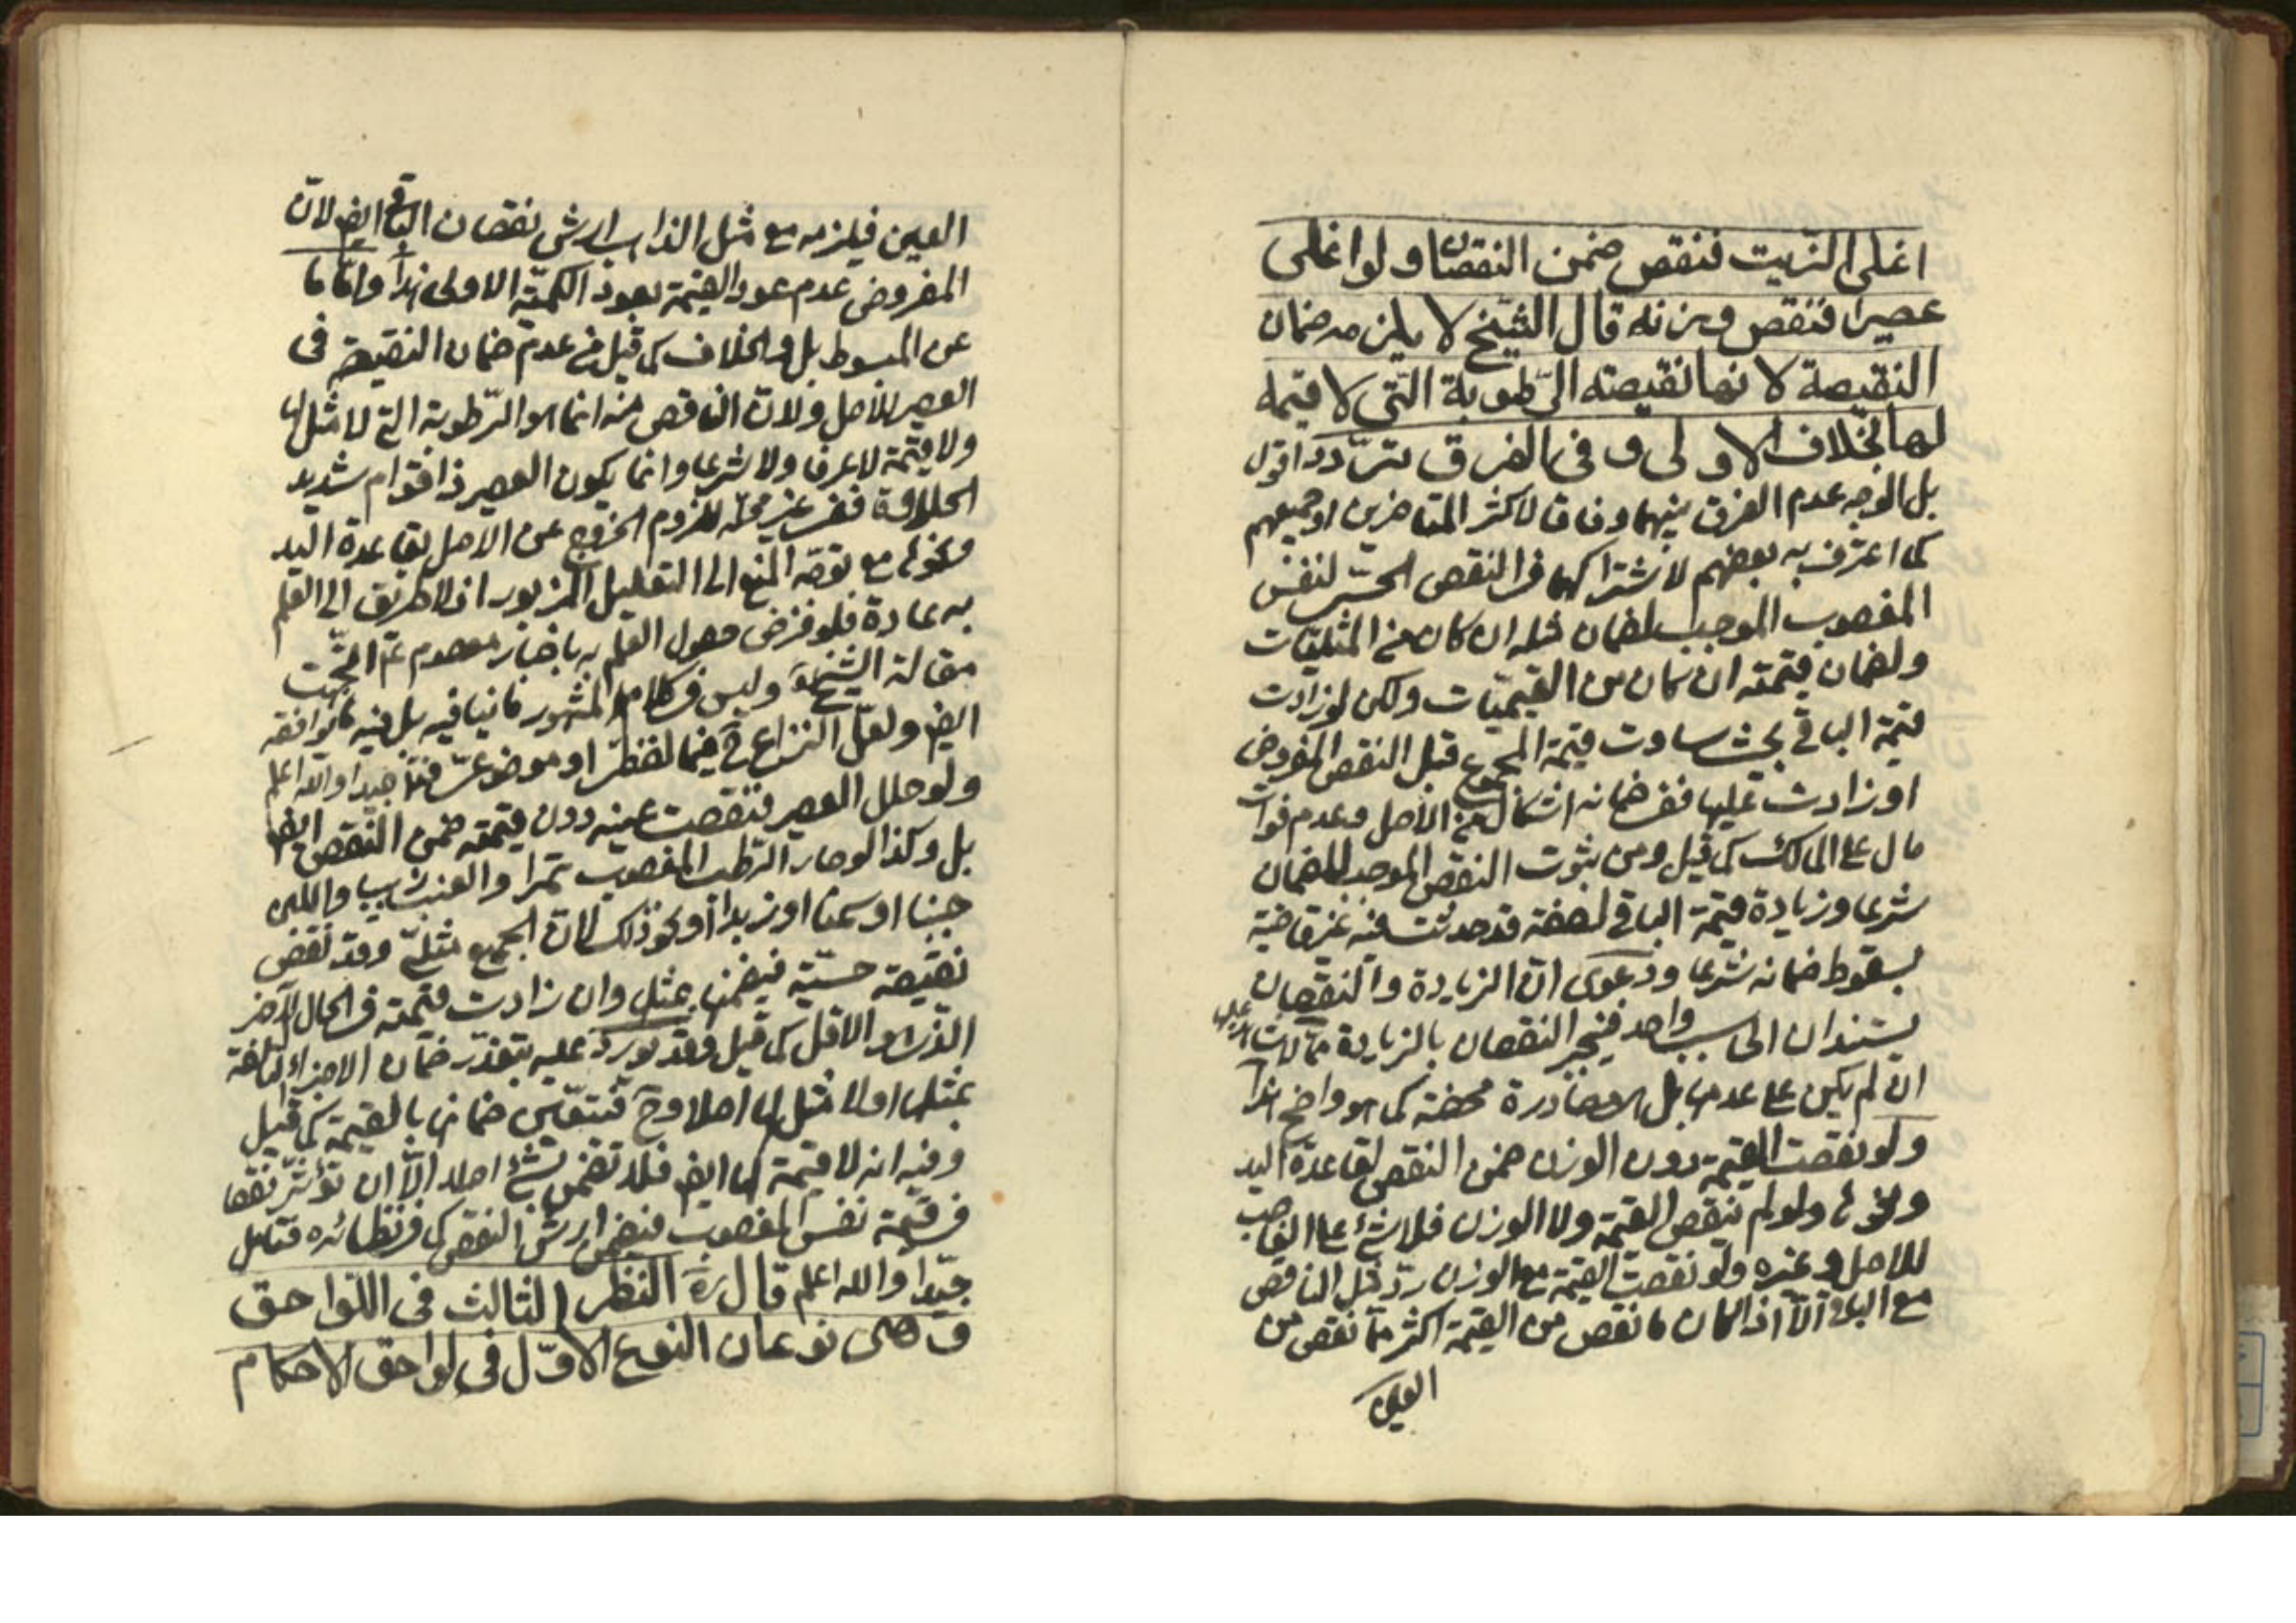 اغلى الزيت فنقص ضمن النقصان ولو اغلى
عصيرا فنقص وزنه قال الشيخ لا يلزمه ضمان
النقيصة لانها نقيصة الرّطوبة الّتى لا قيمة
لها بخلاف الاولى وفى الفرق تردّد اقول
بل الوجه عدم الفرق بينهما وفاقا لاكثر المتاخرين او جميعهم
كما اعترف به بعضهم لاشتراكهما فى النقص الحسّى لنفس
المغصوب الموجب لضمان مثله ان كان من المثليّات
ولضمان قيمته ان كان من القيميّات ولكن لو زادت
قيمة الباقى بحيث ساوت قيمة المجموع قبل النقص المفروض
او زادت عليها ففى ضمانه اشكال من الاصل وعدم فوات
مال على المالك كما قيل ومن ثبوت النقص الموجب للضمان
شرعا وزيادة قيمة الباقى لصفة قد حدثت فيه غير قاضية
بسقوط ضمانه شرعا ودعوى انّ الزيادة والنقصان
يستندان الى سبب واحد فينجبر النقصان بالزيادة ممّا لا شاهد عليها
ان لم يكن على عدمها بل هى مصادرة محضة كما هو واضح هذا
ولو نقصت القيمة دون الوزن ضمن النقص لقاعدة اليد
ونحوها ولو لم تنقص القيمة ولا الوزن فلا شئ على الغاصب
للاصل وغيره ولو نقصت القيمة مع الوزن ردّ مثل الناقص
مع الباقى الّا اذا كان ما نقص من القيمة اكثر ممّا نقص من
العين
العين فيلزمه مع مثل الذاهب ارش نقصان الباقى ايض لانّ
المفروض عدم عود القيمة بعود الكميّة الاولى هذا وامّا ما
عن المبسوط بل والخلاف كما قيل من عدم ضمان النقيصة فى
العصير للاصل ولانّ الناقص منه انما هو الرّطوبة التى لا مثل لها
ولا قيمة لا عرفا ولا شرعا وانما يكون العصير ذا قوام شديد
الحلاوة ففى غير محلّه للزوم الخروج عن الاصل بقاعدة اليد
ونحوها مع توجّه المنع الى التعليل المزبور اذ لا طريق الى العلم
به عادة فلو فرض حصول العلم به باخبار معصوم ع اتّجهت
مقالة الشيخ وليس فى كلام المشهور ما ينافيه بل فيه ما يوافقه
ايض ولعلّ النزاع ح فيهما لفظىّ او موضوعىّ فتأمّل جيّدا والله اعلم
ولو خلل العصير فنقصت عينه دون قيمته ضمن النقص ايضا
بل وكذا لو صار الرّطب المغصوب تمرا والعنب زبيبا واللبن
جبنا او سمنا او زبدا او نحو ذلك لانّ الجميع مثلىّ وقد نقص
نقيصة حسّيّة فيضمنها بمثلها وان زادت قيمته فى الحال الآخر
الّذى هو الاقل كما قيل وقد يورد عليه بتعذّر ضمان الاجزاء التالفة
بمثلها اذ لا مثل لها اصلا وح فيتعيّن ضمانها بالقيمة كما قيل
وفيه انه لا قيمة لها ايض فلا تضمن بشئ اصلا الّا ان تؤثّر نقصا
فى قيمة نفس المغصوب فيضمن ارش النقص كما فى نظائره فتامل
جيّدا والله اعلم قال ره النظر الثالث فى اللّواحق
وهى نوعان النوع الاوّل فى لواحق الاحكام